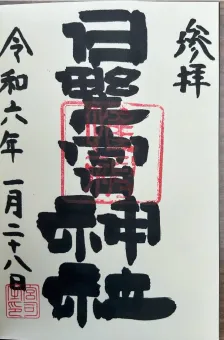 參拝
日野宮神社
令和六年 一月二十八日